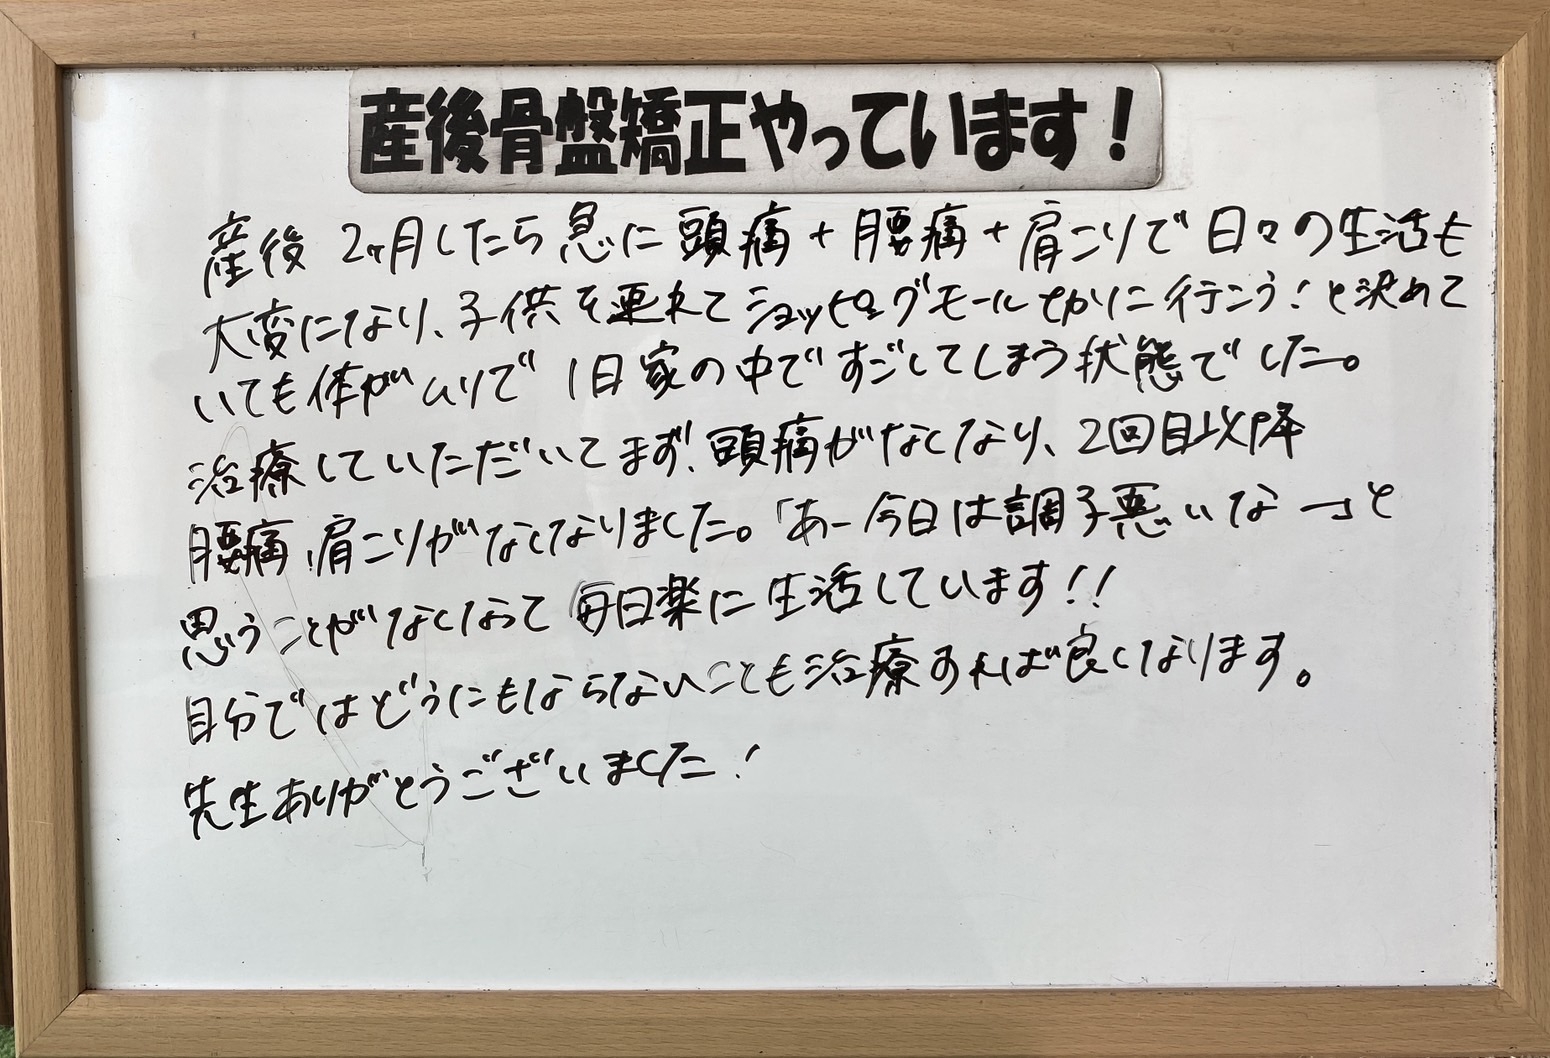 産後骨盤矯正やっています！
産後 2ヶ月したら急に頭痛+腰痛+肩こりで日々の生活も
大変になり、子供を連れてショッピングモールとかに行こう！と決めて
いても体がムリで 1日家の中ですごしてしまう状態でした。
治療していただいてまず、頭痛がなくなり、2回目以降
腰痛、肩こりがなくなりました。「あー今日は調子悪いなー」と
思うことがなくなって毎日楽に生活しています!!
自分ではどうにもならないことも治療すれば良くなります。
先生ありがとうございました！